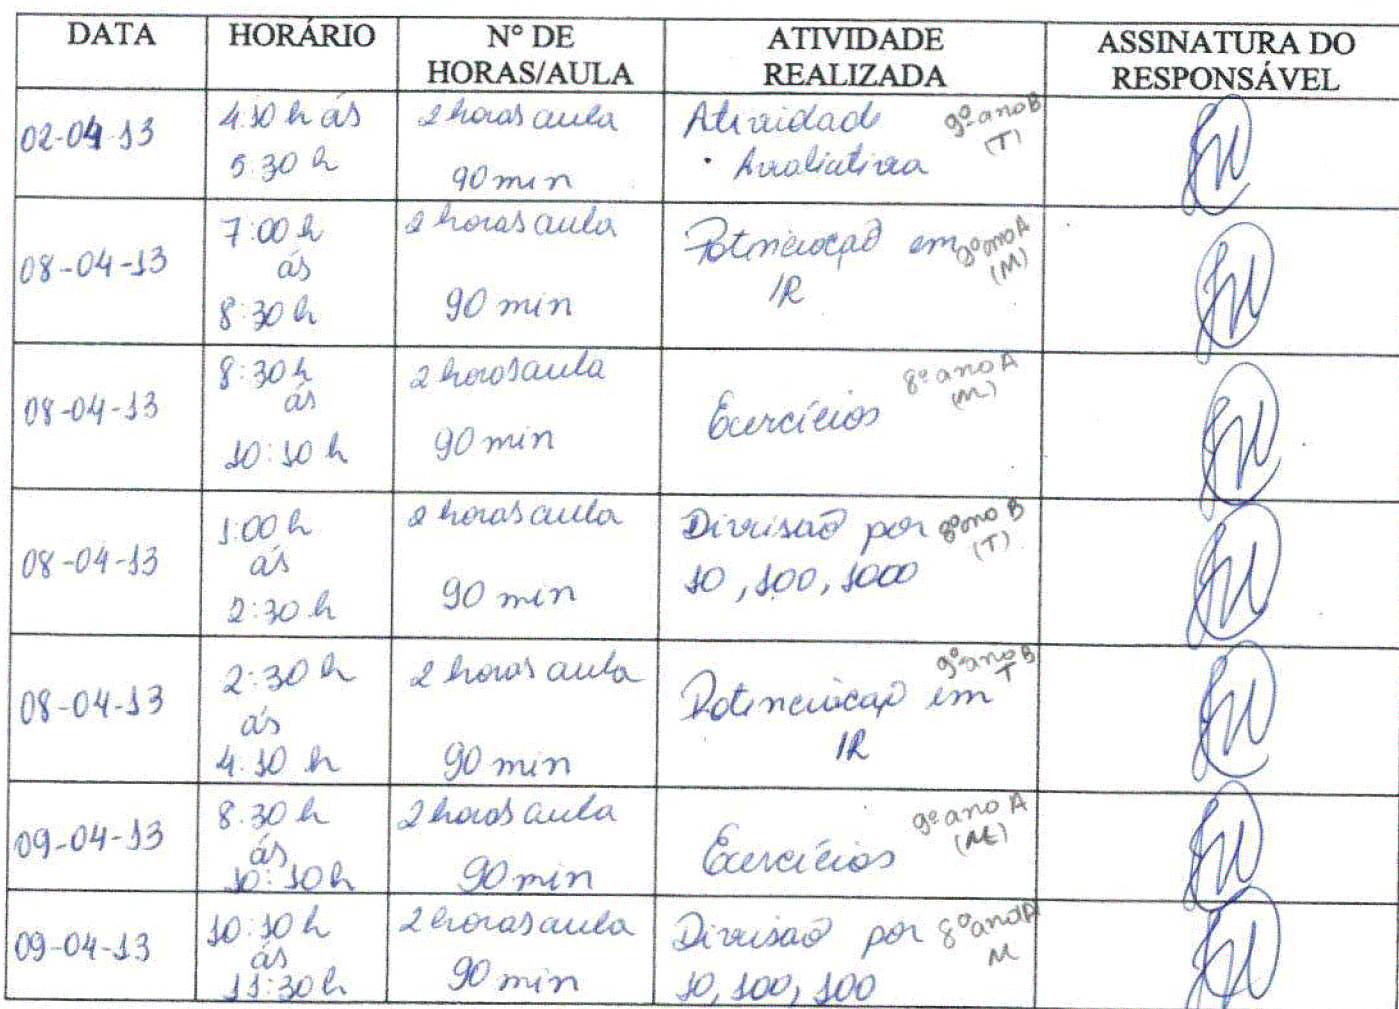 DATA HORÁRIO Nº DE HORAS/AULA ATIVIDADE REALIZADA ASSINATURA DO RESPONSÁVEL
02-04-13 4:10 h ás 5:30 h 2 horas aula 90 min Atividade Avaliativa 9º ano B (T)
08-04-13 7:00 h ás 8:30 h 2 horas aula 90 min Potenciação em IR 9º ano A (M)
08-04-13 8:30 h ás 10:10 h 2 horas aula 90 min Exercícios 8º ano A (M)
08-04-13 1:00 h ás 2:30 h 2 horas aula 90 min Divisão por 10, 100, 1000 8º ano B (T)
08-04-13 2:30 h ás 4:10 h 2 horas aula 90 min Potenciação em IR 9º ano B T
09-04-13 8:30 h ás 10:10 h 2 horas aula 90 min Exercícios 9º ano A (M)
09-04-13 10:10 h ás 11:30 h 2 horas aula 90 min Divisão por 10, 100, 100 8º ano A M